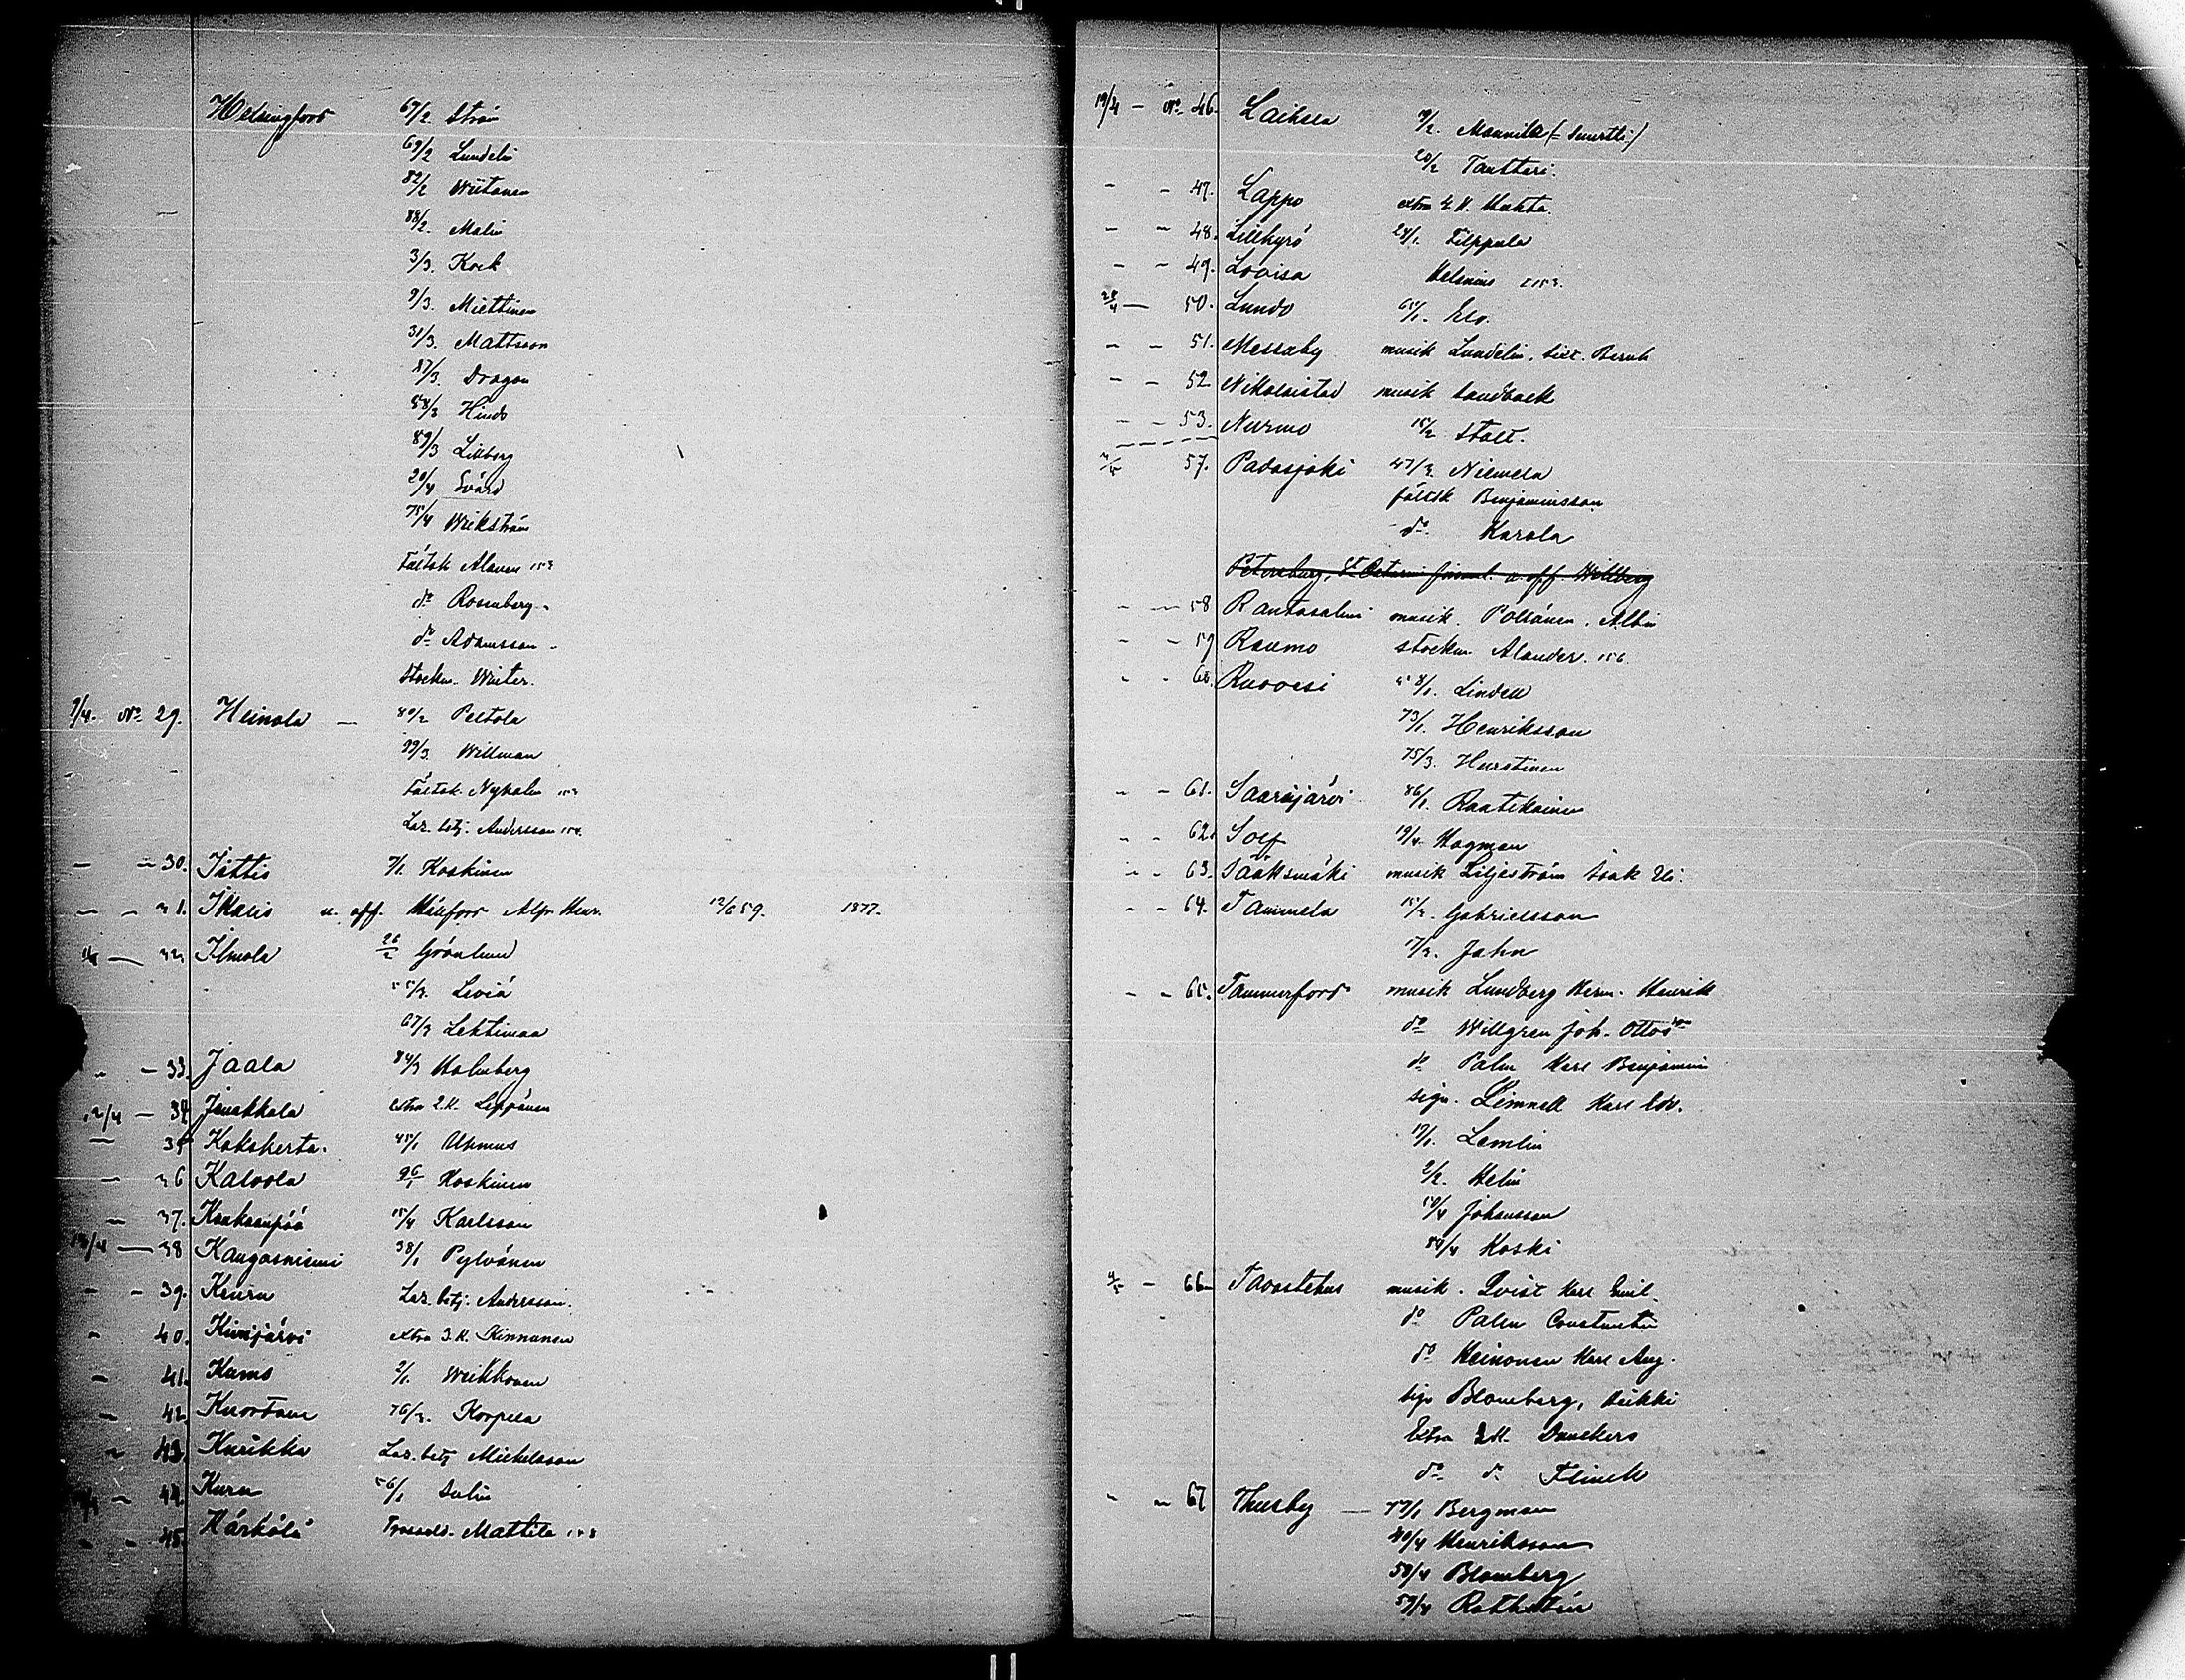 Helsingfors 67/2 Ström
69/2 Lundelin
82/2 Wiitanen
88/2. Malin
3/3. Kock
9/3. Miettinen
31/3. Mattsson
87/3. Dragon
58/3 Hinds
89/3 Lillberg
20/4 Svärd
75/4 Wikström
Fältsk. Alanen 153
do Rosenberg
do Adamsson
Stockm. Winter.
9/4. No 29. Heinola — 80/2 Peltola
99/3. Willman
Fältsk. Nyholm 153
Laz. betj. Andersson 154.
— — 30. Jättis 7/1. Koskinen
— — 31. Ikalis u. off. Hällfors Alfr. Henr. 12/6 59. 1877.
— 32 Ilmola 26/2 Grönlund
55/3. Leviä
67/3 Lehtimaa
- — 33. Jaala 84/3 Holmberg
12/4 — 34 Janakkala extra 2.K. Leppänen
— 35 Kakskerta. 45/1 Alhmus
— 36 Kalvola 96/1 Koskinen
— 37. Kankaanpää 15/4 Karlsson
— 38 Kangasniemi 38/1 Pylvänen
- - 39. Keuru Laz. betj. Andersson.
- 40. Kivijärvi extra 3.K. Kinnunen
- 41. Kumo 2/1. Weikkonen
- 42. Kuortane 76/3. Korpela
- 43. Kurikka Laz. betj Mickelsson
— 44. Kuru 56/1 Dalin
- - 45. Kärkölä Trossk. Mattila 158
19/4 — No 46. Laihela 19/2. Mannila (= Smurtti)
20/2 Tanttari.
- - 47. Lappo extra 4.K. Huhta.
- - 48. Lillkyrö 28/1. Filppula
- - 49. Lovisa Helenius 153.
28/4 — 50. Lundo 65/1. Elo.
- - 51. Messuby musik Lundelin,
- - 52 Nikolaistad musik Sandback
- - 53. Nurmo 15/2 Stolt.
57. Padasjoki 47/3. Niemelä
fältsk Benjaminsson
do. Karola
Petersburg, St u. off Wallberg
- — 58 Rantasalmi musik. Pöllänen. Albin
- - 59 Raumo stockm. Alander. 156.
- - 60. Ruovesi 58/1. Lindell
73/1. Henriksson
75/3. Hurstinen
- - 61. Saarijärvi 86/1. Raatikainen
- - 62. Solf 19/4 Hagman
- - 63. Sääksmäki musik Liljeström Isak Eli.
- - 64. Tammela 15/3. Gabrielsson
17/3. Jahn
- - 65. Tammerfors musik Lundberg Herm. Henrik
do Willgren Joh. Ottoson
do Palm Karl Benjamin
sign. Limnell Karl Edv.
19/1. Lemlin
2/2. Helin
50/4 Johansson
80/4 Koski
4/5 — 66 Tavastehus musik. Qvist Karl Emil.
do Palm Constantin
do Heinonen Karl Aug.
sign Blomberg, Heikki
Extra 2K. Dunckers
do d. Flinck
- — 67 Thusby — 77/1 Bergman
40/4 Henriksson
58/4 Blomberg
59/4 Rothstén